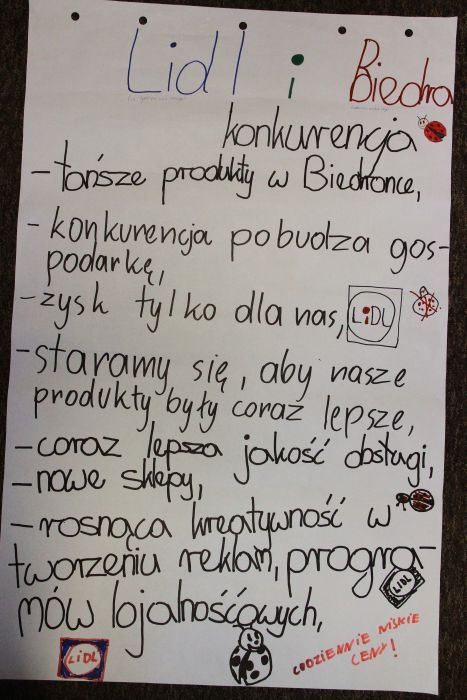 Lidl i Biedro
konkurencja
- tańsze produkty w Biedronce,
- konkurencja pobudza gos-
podarkę,
- zysk tylko dla nas, LiDL
- staramy się, aby nasze
produkty były coraz lepsze,
- coraz lepsza jakość obsługi,
- nowe sklepy,
- rosnąca kreatywność w
tworzeniu reklam, progra-
LiDL
mów lojalnośćowych,
LiDL
CODZIENNIE NISKIE
CENY!